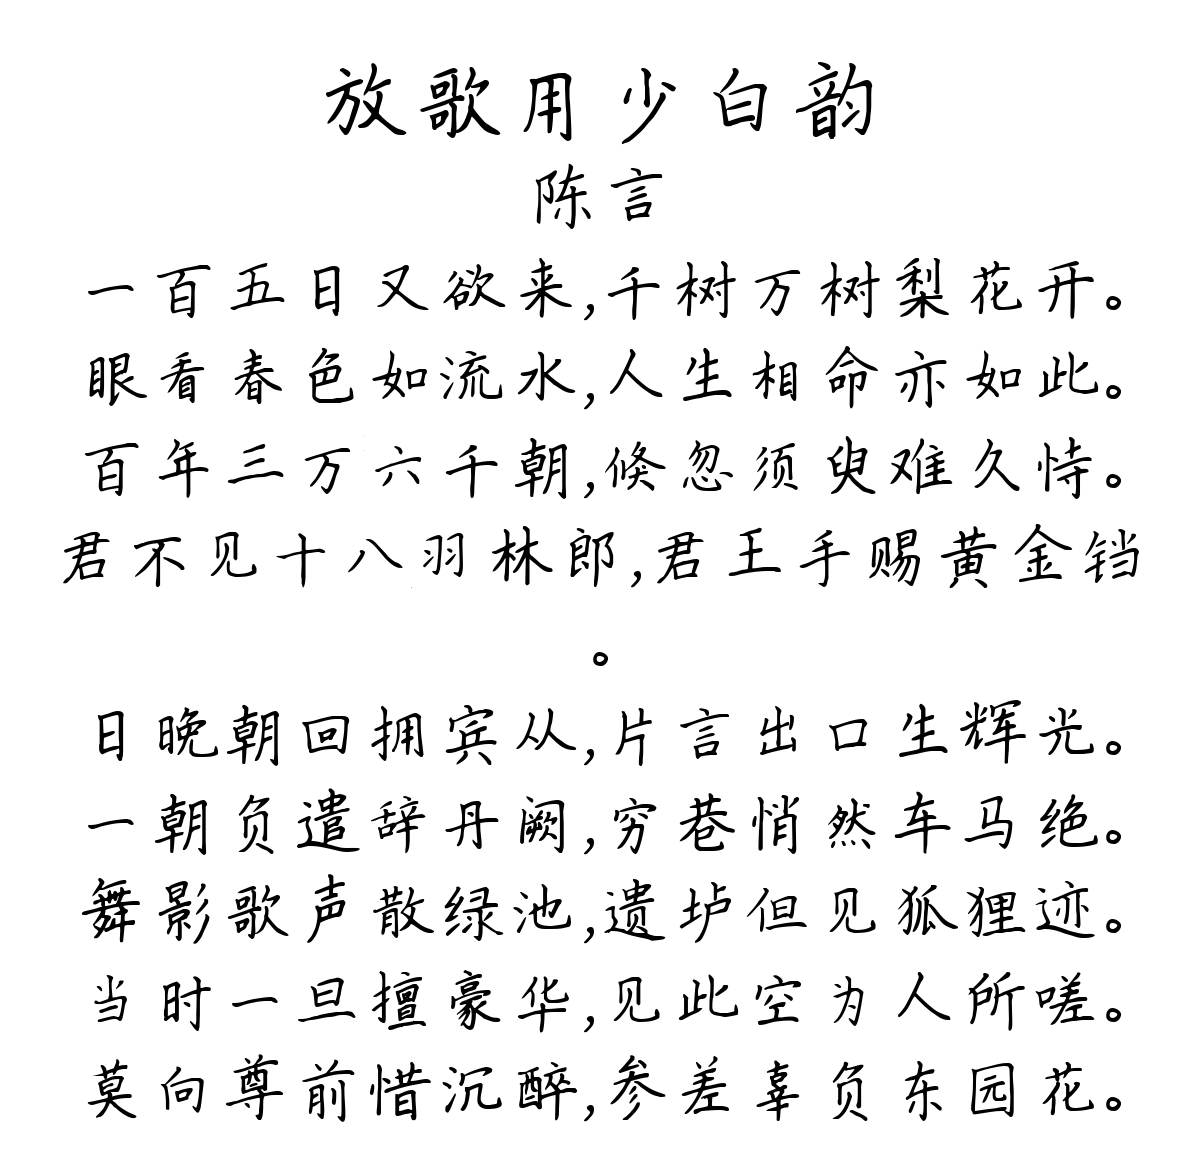 放歌用少白韵
陈言
一百五日又欲来,千树万树梨花开。
眼看春色如流水,人生相命亦如此。
百年三万六千朝,倏忽须臾难久恃。
君不见十八羽林郎,君王手赐黄金铛
。
日晚朝回拥宾从,片言出口生辉光。
一朝负遣辞丹阙,穷巷悄然车马绝。
舞影歌声散绿池,遗垆但见狐狸迹。
当时一旦擅豪华,见此空为人所嗟。
莫向尊前惜沉醉,参差辜负东园花。